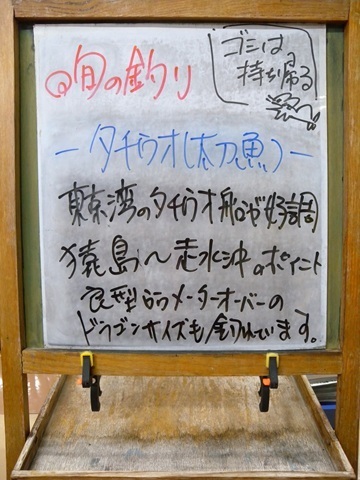 @旬の釣り
ゴミは、
持ち帰る
ータチウオ(太刀魚)ー
東京湾のタチウオ船が好調
猿島〜走水沖のポイント
良型からメーターオーバーの
ドラゴンサイズも釣れています。